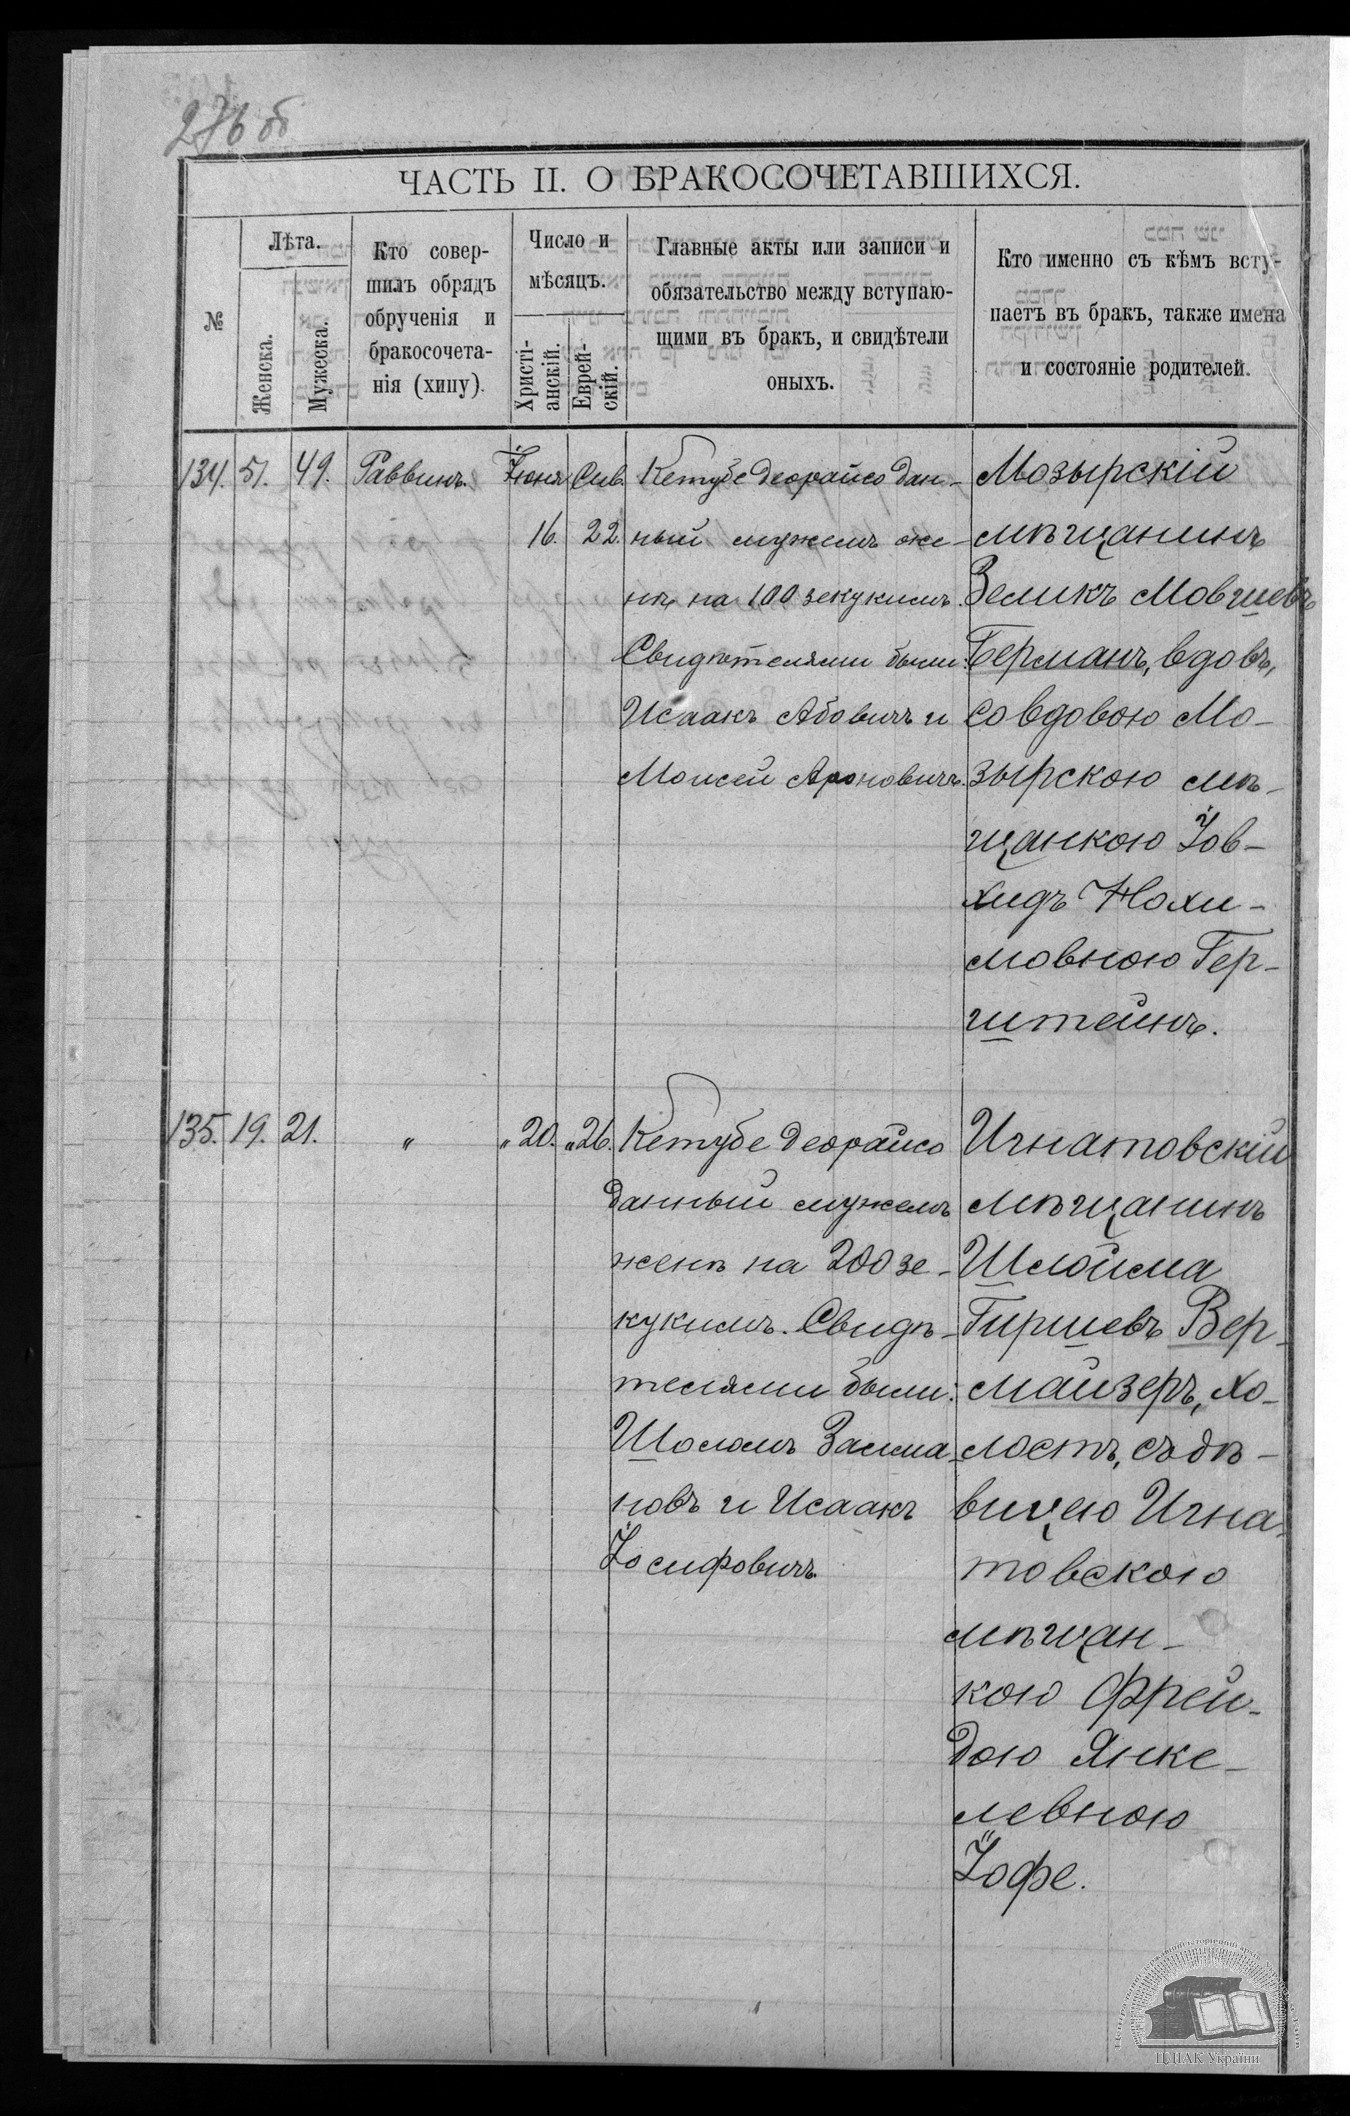 276 об
ЧАСТЬ II. О БРАКОСОЧЕТАВШИХСЯ.
№
Лѣта.
Женска.
Мужеска.
Кто совер-
шилъ обрядъ
обрученія и
бракосочета-
нія (хипу).
Число и
мѣсяцъ.
Христі-
анскій.
Еврей-
скій.
Главные акты или записи и
обязательство между вступаю-
щими въ бракъ, и свидѣтели
оныхъ.
Кто именно съ кѣмъ всту-
паетъ въ бракъ, также имена
и состояніе родителей.
134. 51. 49. Раввинъ. Іюня 16. Сив. 22.
Кетубе деорайсо дан-
ный мужемъ же-
нѣ на 100 зекукимъ.
Свидѣтелями были:
Исаакъ Абовичъ и
Моисей Ароновичъ.
Мозырскій
мѣщанинъ
Зеликъ Мовшевъ
Берманъ, вдовъ,
со вдовою Мо-
зырскою мѣ-
щанкою Іов-
хидъ Нохи-
мовною Гер-
штейнъ.
135. 19. 21. " " 20. " 26.
Кетубе деорайсо
данный мужемъ
женѣ на 200 зе-
кукимъ. Свидѣ-
телями были:
Шоломъ Залма-
новъ и Исаакъ
Іосифовичъ.
Игнатовскій
мѣщанинъ
Шлойма
Гиршевъ Вер-
майзеръ, хо-
лостъ, съ дѣ-
вицею Игна-
товскою
мѣщан-
кою Фрей-
дою Янке-
левною
Іофе.
ЦДІАК України